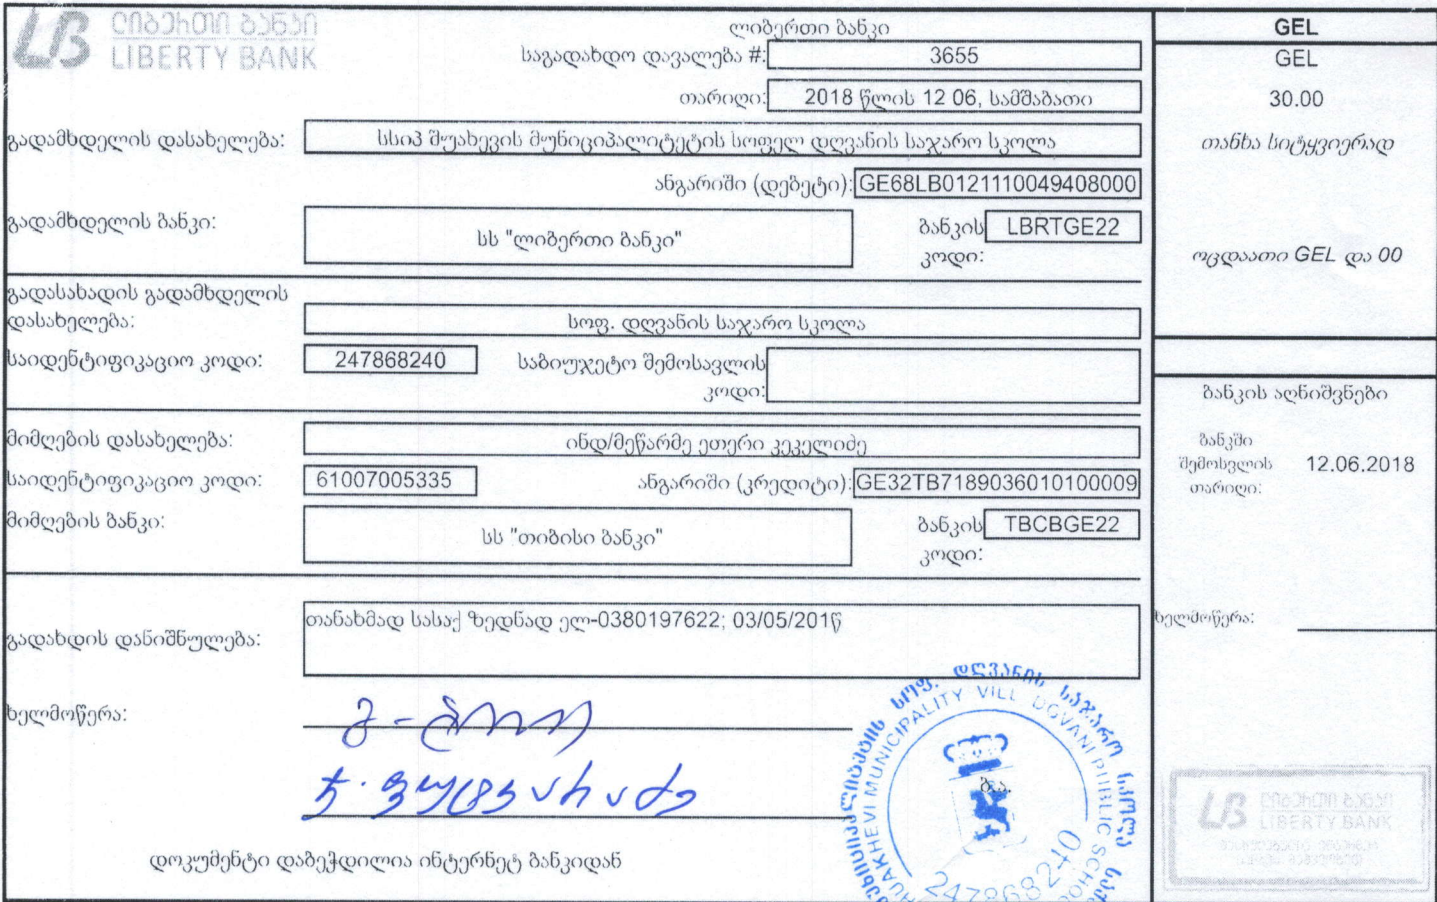 LB ლიბერთი ბანკი
LIBERTY BANK
ლიბერთი ბანკი
საგადახდო დავალება #: 3655
თარიღი: 2018 წლის 12 06, სამშაბათი
გადამხდელის დასახელება: სსიპ შუახევის მუნიციპალიტეტის სოფელ დღვანის საჯარო სკოლა
ანგარიში (დებეტი): GE68LB0121110049408000
გადამხდელის ბანკი: სს "ლიბერთი ბანკი" ბანკის კოდი: LBRTGE22
გადასახადის გადამხდელის
დასახელება: სოფ. დღვანის საჯარო სკოლა
საიდენტიფიკაციო კოდი: 247868240 საბიუჯეტო შემოსავლის
კოდი:
მიმღების დასახელება: ინდ/მეწარმე ეთერი კეკელიძე
საიდენტიფიკაციო კოდი: 61007005335 ანგარიში (კრედიტი): GE32TB7189036010100009
მიმღების ბანკი: სს "თიბისი ბანკი" ბანკის კოდი: TBCBGE22
გადახდის დანიშნულება: თანახმად სასაქ ზედნად ელ-0380197622; 03/05/201წ
ხელმოწერა:
ბ.ა.
დოკუმენტი დაბეჭდილია ინტერნეტ ბანკიდან
სოფ. დღვანის საჯარო სკოლა
MUNICIPALITY VILL DGVANI PUBLIC
247868240
GEL
GEL
30.00
თანხა სიტყვიერად
ოცდაათი GEL და 00
ბანკის აღნიშვნები
ბანკში
შემოსვლის 12.06.2018
თარიღი:
ხელმოწერა:
LB ლიბერთი ბანკი
LIBERTY BANK